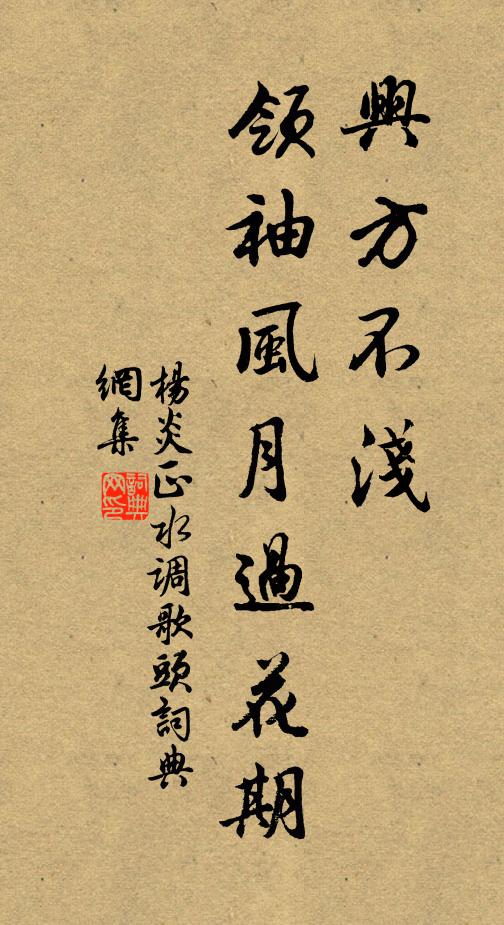 興方不淺
領袖風月過花期
楊炎正水调歌頭詞典
網集
詞典
网印